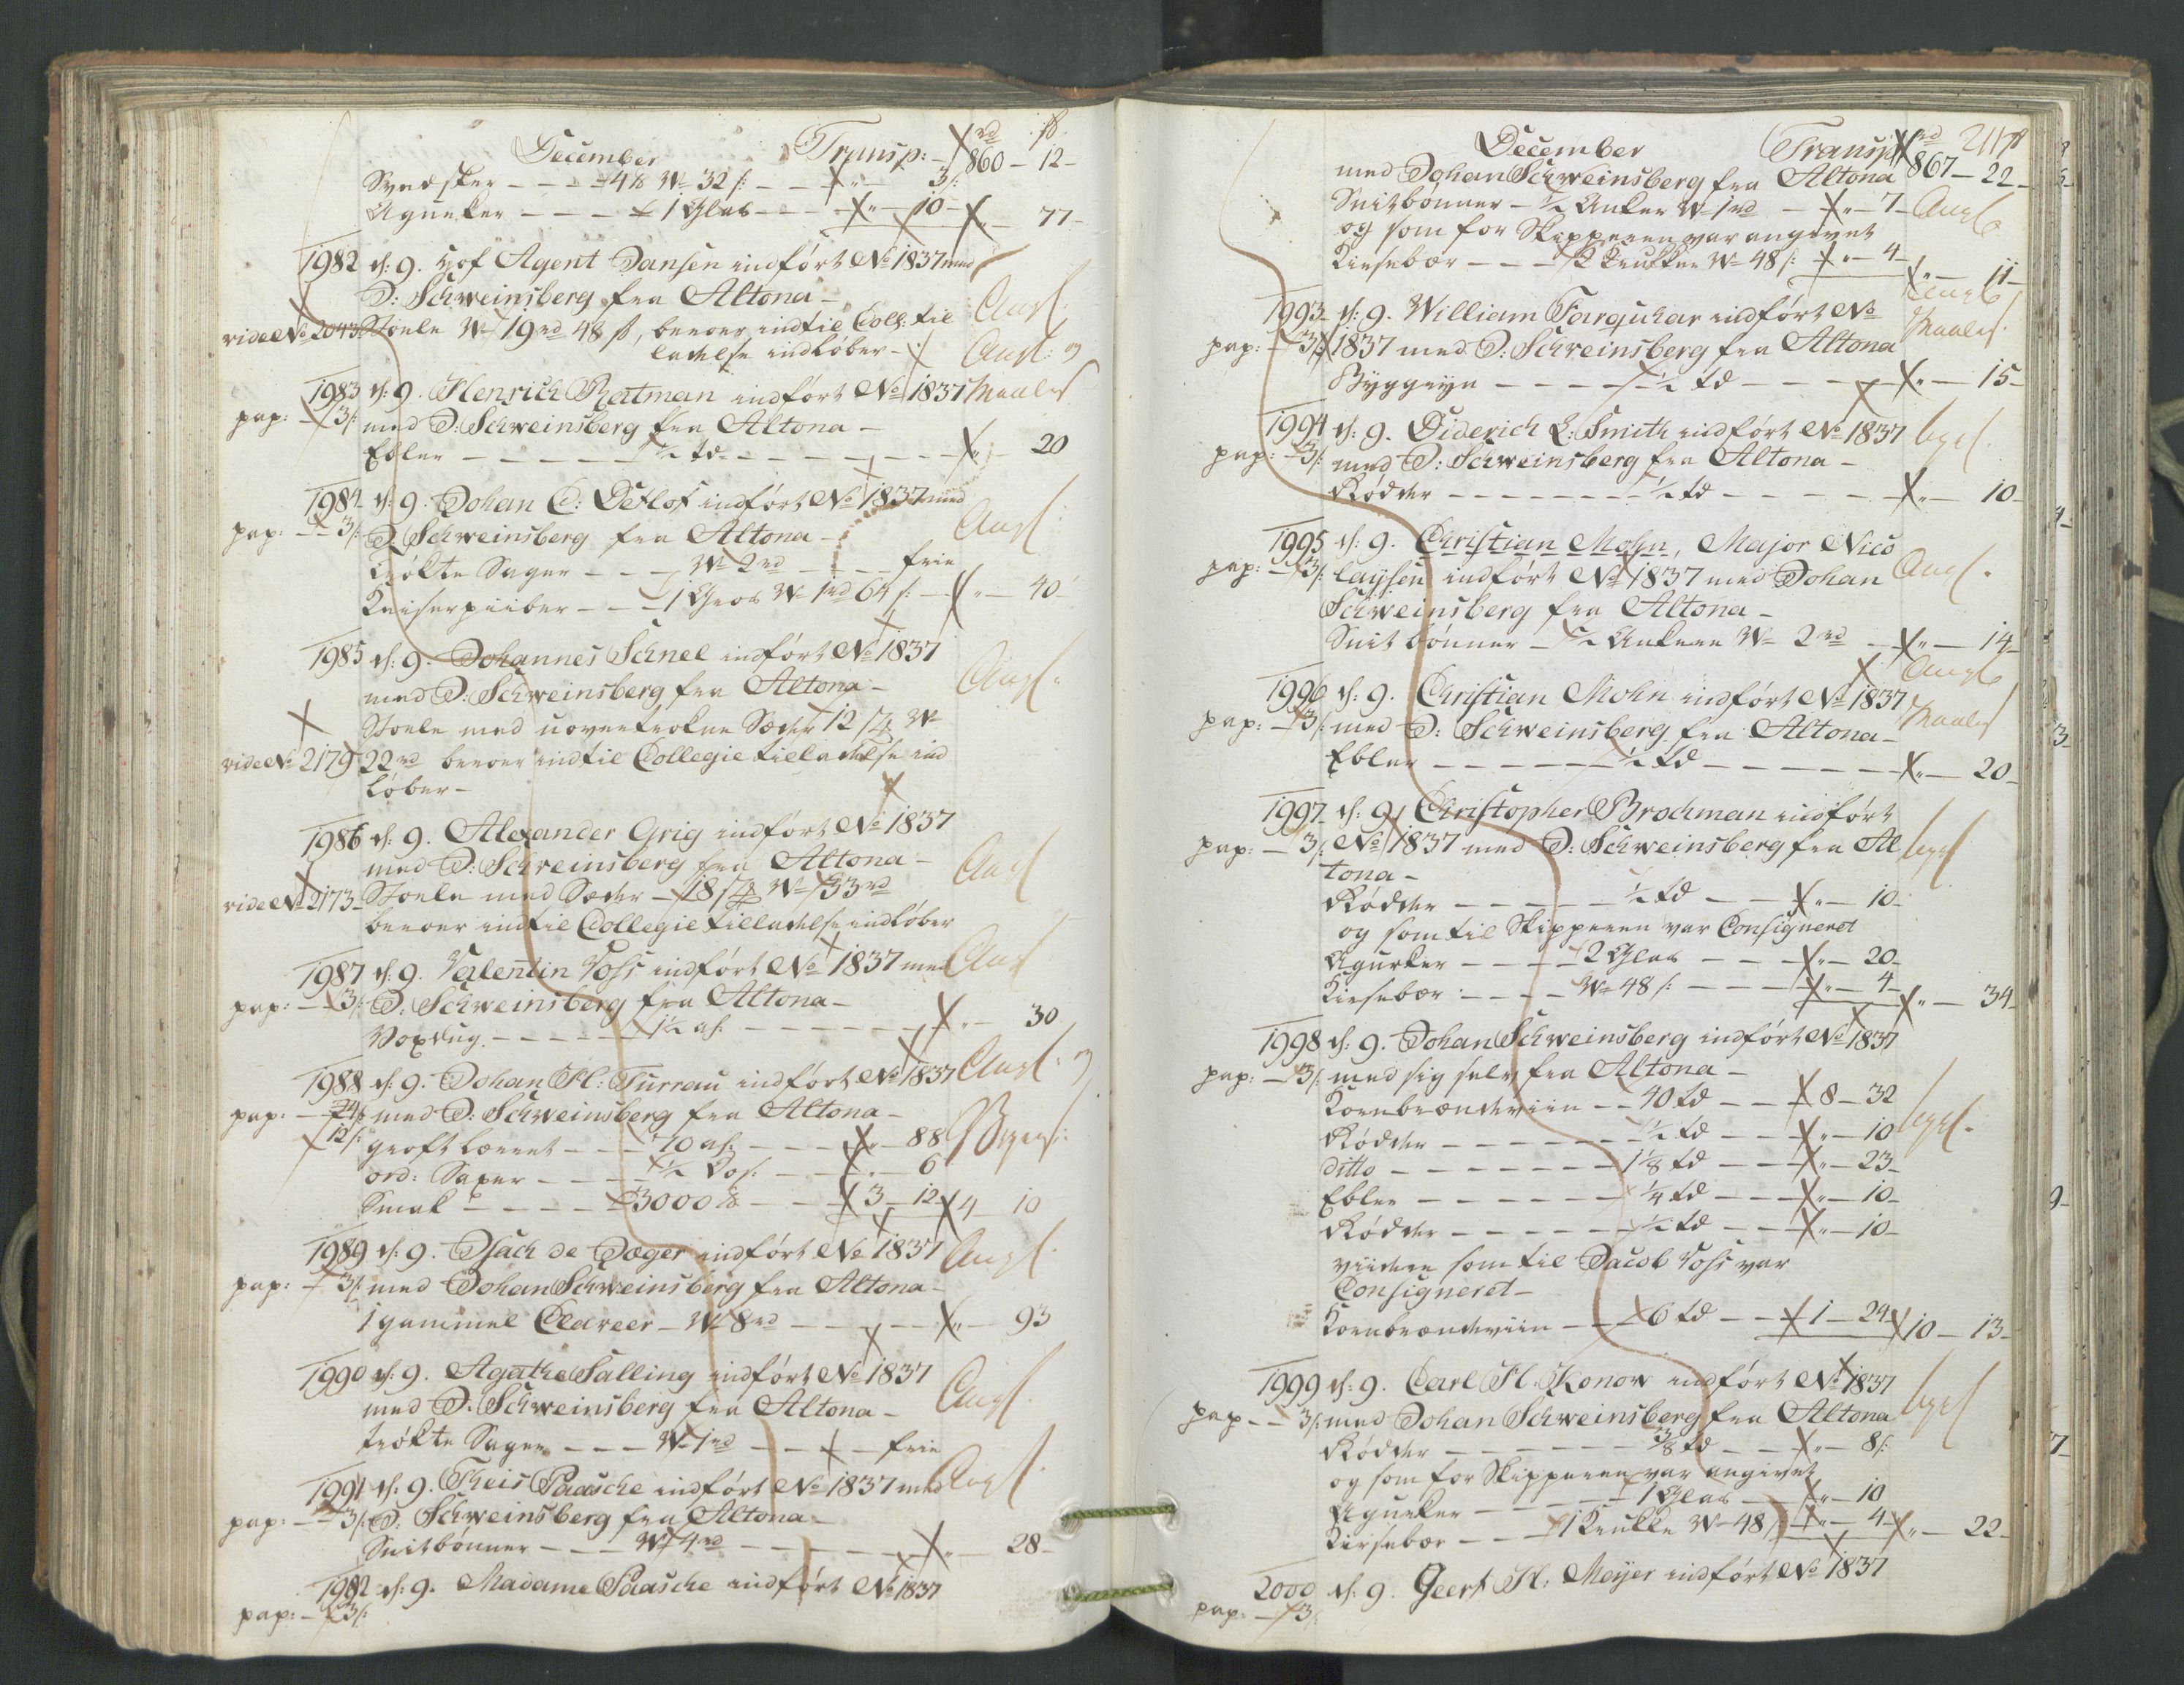 December Transp: rd ß
860 - 12 -
Svedsker - - - 48 ℔ W 32 ß: - - " - 3 ß:
Agurker - - - 1 Glas - - - " - 10 - " - 77 -
1982 d: 9. Hof Agent Jansen indført No 1837 med
J: Schweinsberg fra Altona - Angl:
vide No 2043 Stoele W 19 rd 48 ß, beroer indtil Coll: til
ladelse indløber - Angl: og
1983 d: 9. Henrich Ratman indført No 1837 Maaler
pap: - 3 ß: med J: Schweinsberg fra Altona -
Ebler - - - ½ td - - - " - 20
1984 d: 9. Johan C: Detlof indført No 1837 med
pap: - 3 ß: J: Schweinsberg fra Altona - Angl:
Trøkte Sager - - - W 2 rd - - - frie
Keiserpiiber - - - 1 Gros W 1 rd 64 ß: - " - 40
1985 d: 9. Johannes Schnel indført No 1837
med J: Schweinsberg fra Altona - Angl:
Stoele med uovertrokne Sæder 12 St W
vide No 2179 22 rd beroer indtil Collegie tilladelse ind
løber -
1986 d: 9. Alexander Grig indført No 1837
med J: Schweinsberg fra Altona - Angl
vide No 2173 Stoele med Sæder - 18 St W 33 rd
beroer indtil Collegie tilladelse indløber
1987 d: 9. Valentin Voss indført No 1837 med Angl
pap: - 3 ß: J: Schweinsberg fra Altona -
Voxdug - - - 1½ al: - - - " - 30
1988 d: 9. Johan H: Turrau indført No 1837 Angl: og
pap: - 24 ß: med J: Schweinsberg fra Altona -
12 ß: groft Lærret - - - 70 al: - - - " - 88
ord: Saxer - - - ½ Dos: - - " - 6
Smak - - - 3000 ℔ - - 3 - 12 - 4 - 10
1989 d: 9. Isach de Jager indført No 1837 Angl
pap: - 3 ß: med Johan Schweinsberg fra Altona -
1 gammel Claveer - W 8 rd - - - " - 93
1990 d: 9. Agathe Salling indført No 1837
med J: Schweinsberg fra Altona - Angl
trøkte Sager - - - W 1 rd - - - frie
1991 d: 9. Theis Paasche indført No 1837 med Angl
pap: - 3 ß: J: Schweinsberg fra Altona -
Snitbønner - - - W 4 rd - - - " - 28 -
1982 d: 9. Madame Paasche indført No 1837
pap: - 3 ß:
December Transp: rd 211 ß
med Johan Schweinsberg fra Altona 867 - 22 -
Snitbønner - ½ Anker W 1 rd - " - 7 - Angl
og som for Skipperen var angivet
Kirsebær - - - 2 Krukker W 48 ß: " - 4 -
" - 11 -
1993 d: 9. William Farquhar indført No Angl
pap: - 3 ß: 1837 med J: Schweinsberg fra Altona Maaler
Byggryn - - - ½ td - - - " - 15 -
1994 d: 9. Diderich L: Smith indført No 1837
pap: - 3 ß: med J: Schweinsberg fra Altona -
Rødder - - - ½ td - - - " - 10 -
1995 d: 9. Christian Mohn, Major Nico
pap: - 3 ß: laysen indført No 1837 med Johan Angl.
Schweinsberg fra Altona -
Snitbønner - ½ Ankere W 2 rd - " - 14 -
1996 d: 9. Christian Mohn indført No 1837 Angl
pap: - 3 ß: med J: Schweinsberg fra Altona - Maaler
Ebler - - - ½ td - - - " - 20 -
1997 d: 9. Christopher Brochman indført
pap: - 3 ß: No 1837 med J: Schweinsberg fra Al
tona -
Rødder - - - ½ td - - " - 10 -
og som til Skipperen var Consigneret
Agurker - - - 2 Glas - - " - 20 -
Kirsebær - - - W 48 ß: - - - " - 4 - " - 34 -
1998 d: 9. Johan Schweinsberg indført No 1837
pap: - 3 ß: med sig selv fra Altona -
Kornbrændeviin - - 40 td - - 8 - 32
Rødder - - - ½ td - - " - 10
ditto - - - 1⅛ td - - " - 23 -
Ebler - - - ¼ td - - " - 10 -
Rødder - - - ½ td - - " - 10 -
viidere som til Jacob Voss var
Consigneret -
Kornbrændeviin - - - 6 td - - 1 - 24 10 - 13 -
1999 d: 9. Carl H: Konow indført No 1837
pap - - 3 ß: med Johan Schweinsberg fra Altona
Rødder - - - ⅜ td - - " - 8 ß:
og som for Skipperen var angivet
Agurker - - - 1 Glas - - " - 10
Kirsebær - - - 1 Krukke W 48 ß: " - 4 - " - 22 -
2000 d: 9. Geert H: Meyer indført No 1837
pap: - 3 ß: